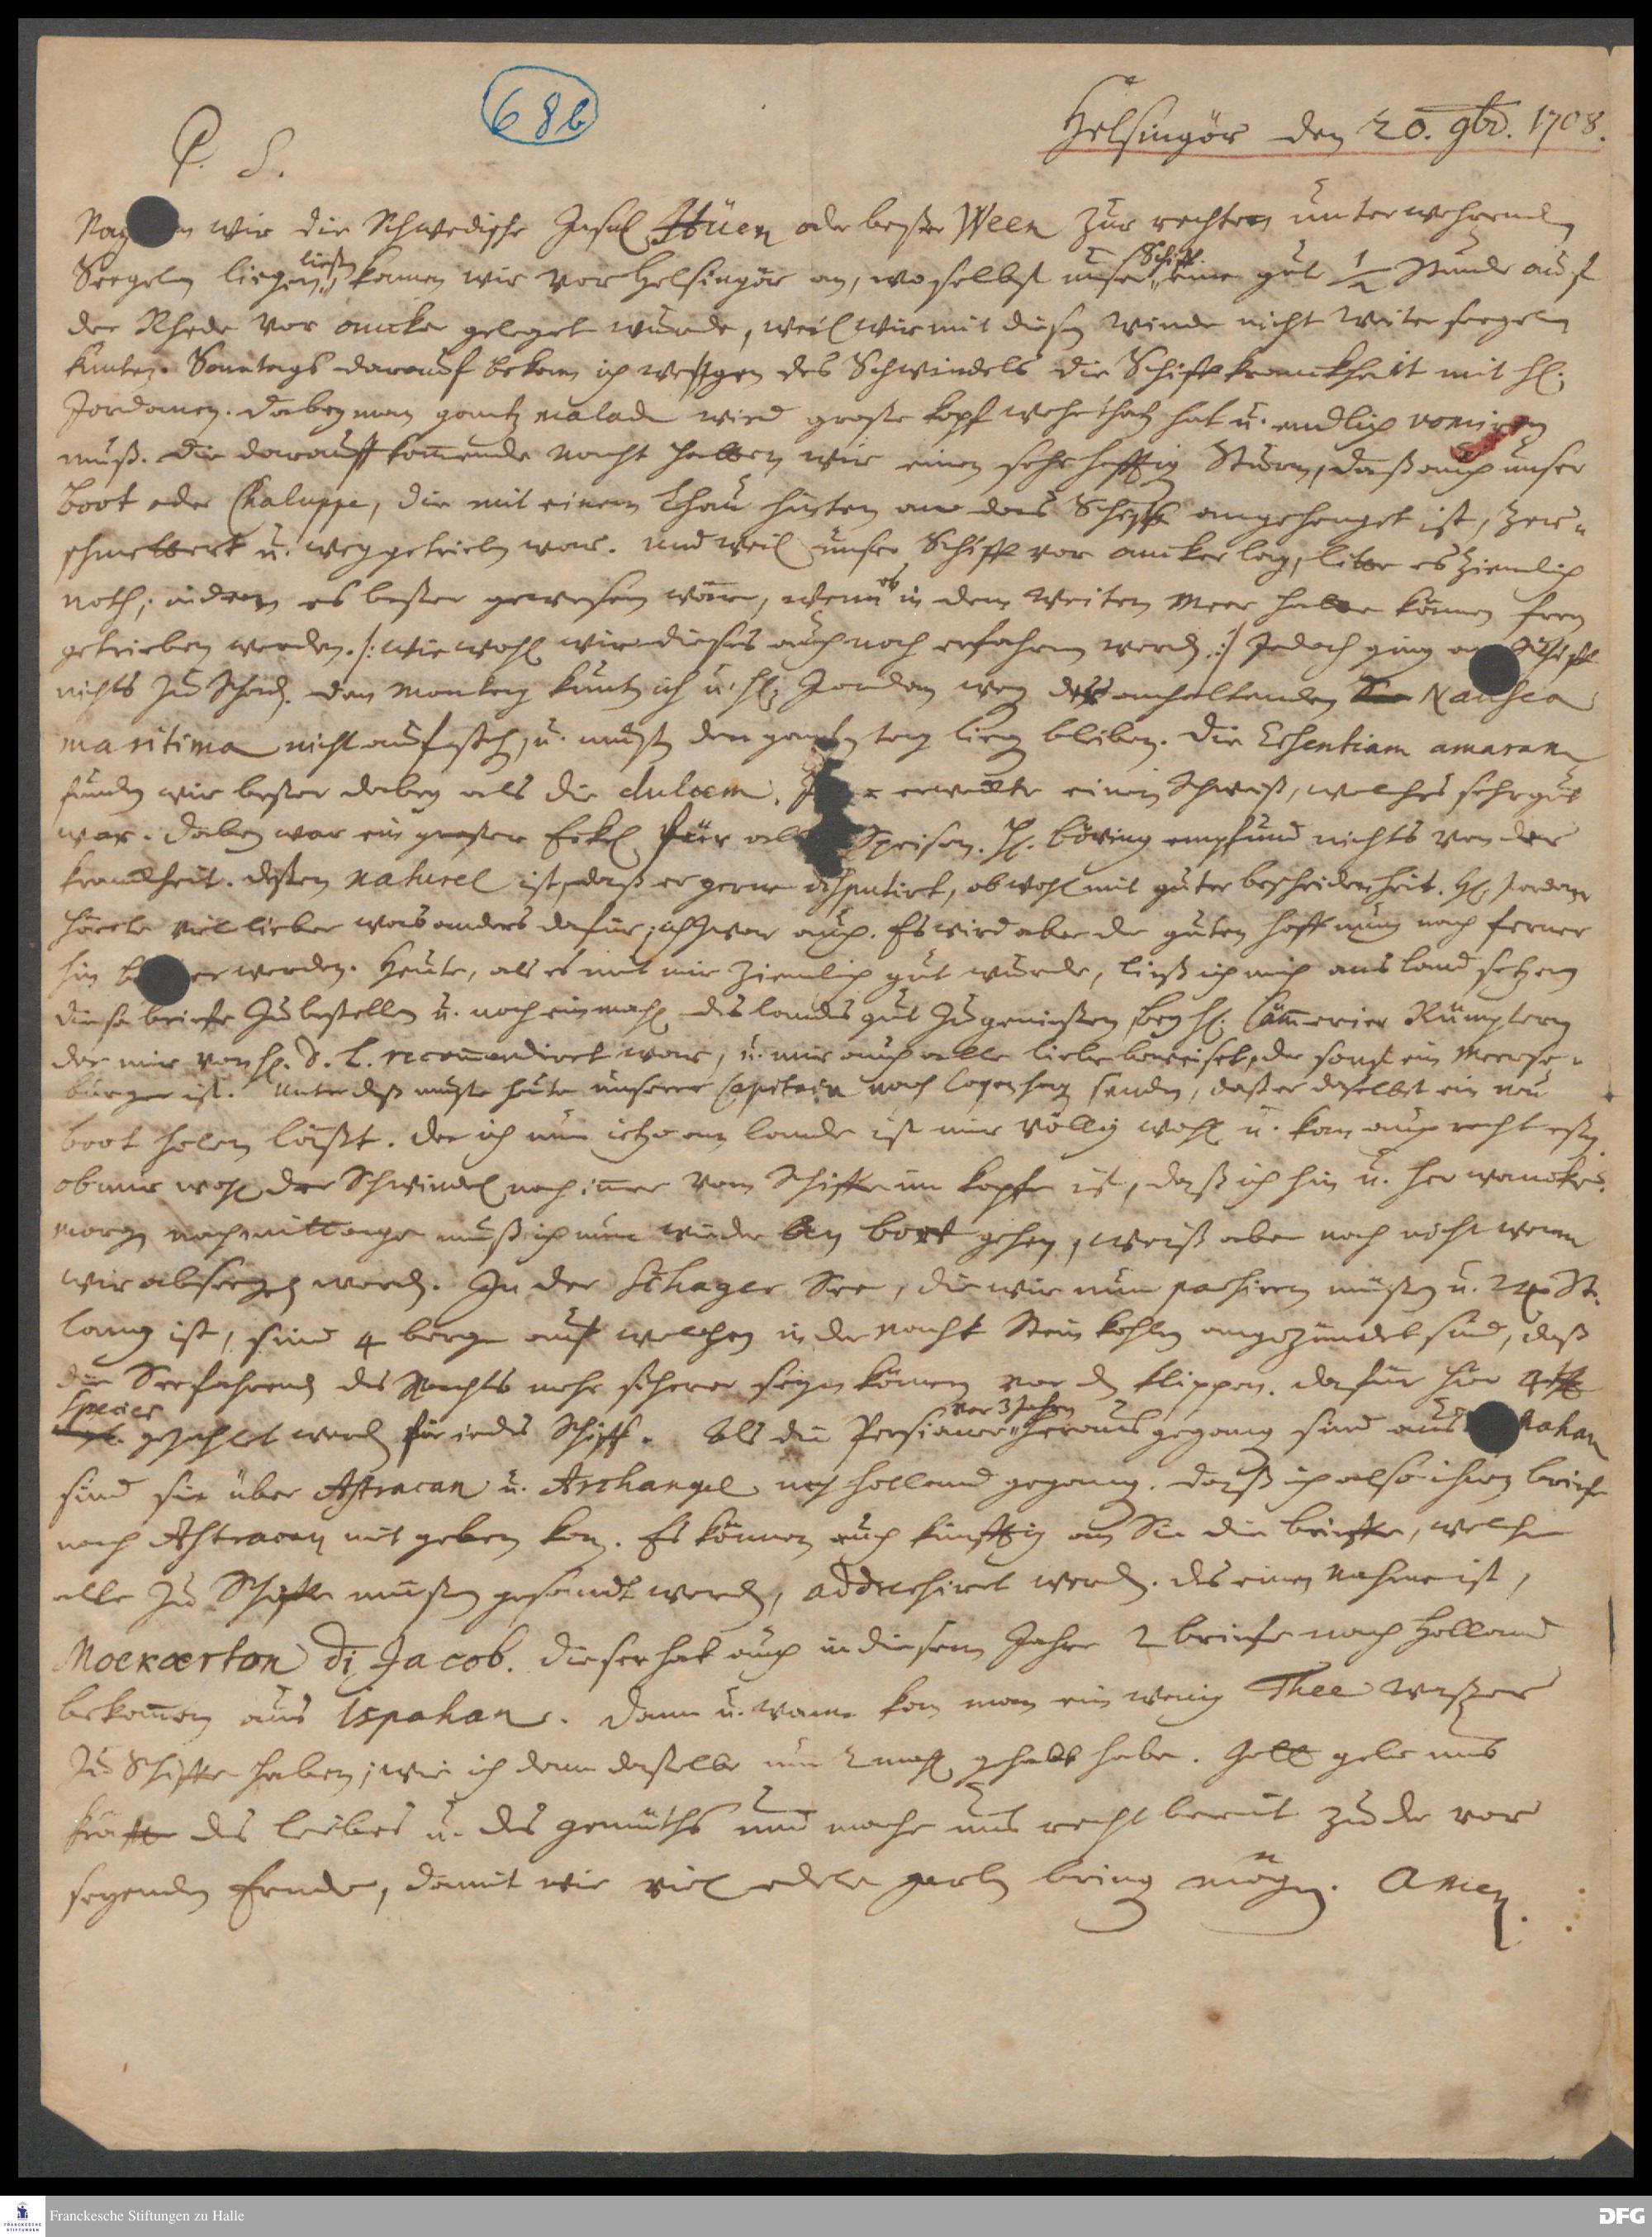 68b
Helsingör den 20. 9br. 1708.
P. S.
wir die Schwedische Insul Hüen oder beßer Ween zur rechten unterwehrenden
Seegeln liegen ließen, kamen wir vor Helsingör an, woselbst unser Schiff eine gute 1/2 Stunde auf
der Rhede vor ancker geleget wurde, weil wir mit diesem winde nicht weiter seegeln
kunten. Sontags darauf bekam ich wegen des Schwindels die Schiffkranckheit mit H.
Jordanen. dabey man gantz malade wird große kopf wehethat hat u. endlich vomiren
muß. die darauff kommende nacht hatten wir einen sehr hefftig Sturm, daß auch unser
boot oder Chaluppe, die mit einem Thau hinten an das Schiff angehenget ist, zer-
schmettert u. weggetrieben war. und weil unser Schiff vor ancker lag, litte es ziemlich
noth, indem es beßer gewesen wäre, wenn es in dem weiten Meer hatte können fern
getrieben werden. /: wiewohl wir dieses auch noch erfahren werden :/ Jedoch ging am Schiff
nichts zu Schaden. den Montag kunt ich u. H. Jordan weg der anhaltenden Nausea
maritima nicht aufstehen, u. musten den gantzen tag liegen bleiben. die Essentiam amaram
funden wir beßer dabey als die dulcem. erweckte einen Schweiß, welches sehr gut
war. dabey war ein großer Eckel für alle Speisen. H. böving empfund nichts von der
kranckheit. deßen naturel ist, daß er gerne disputirt, obwohl mit guter bescheidenheit. H. Jordan
hörete viel lieber was anders dafür, ich zwar auch. Es wird aber der guten hoffnung nach ferner
hin beßer werden. Heute, als es mit mir ziemlich gut wurde, ließ ich mich ans land setzen
diese briefe zu bestellen u. noch einmahl des landes gut zu genießen, bey H. Cämmerier Rümplern
der mir von H. D. L. recommendiret war, u. mir auch alle liebe beweiset, der sonst ein Merse-
burger ist. Unterdeß muste heute unserer Capitain nach Copenhag senden, daß er daselbst ein neu
boot holen läßt. Da ich nun ietzo am lande ist mir völlig wohl u. kan auch recht eßen
ob mir wohl der Schwindel noch immer vom Schiffe im kopfe ist, daß ich hin u. her wancke.
Morgen nachmittage muß ich nun wieder an bort gehen, weiß aber noch nicht wenn
wir absegeln werden. In der Schager See, die wir nun passiren müßen u. St.
lang ist, sind 4 berge auf welchen in der nacht Steinkohlen angezündet sind, daß
die Seefahrenden des Nachts mehr sicherer seyn können vor den klippen. dafür hier
Species gezahlet werden für iedes Schiff. Als die Persianer vor 3 Jahren herausgegangen sind aus pahan
sind sie über Astracan u. Archangel nach holland gegangen. daß ich also ihnen briefe
nach Astracan mit geben kan. Es können auch künfftig an Sie die briefe, welche
alle zu Schiffe müßen gesandt werden, addreßiret werden. des einen nahme ist,
Moekærton di Jacob. dieser hat auch in diesem Jahre 2 briefe nach Holland
bekommen aus Ispahan. dann u. wann kan man ein wenig Thee waßer
zu Schiffe haben, wie ich dann daßelbe nun 2 mahl gehabt habe. Gott gebe uns
kräfte des leibes u. des gemüths und mache uns recht bereit zu der vor
seyenden Ernde, damit wir viel edele garben bringen mögen. Amen.
Franckesche Stiftungen zu Halle
DFG